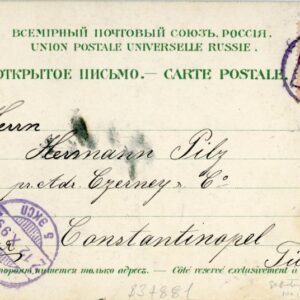 ВСЕМІРНЫЙ ПОЧТОВЫЙ СОЮЗЪ. РОССІЯ.
UNION POSTALE UNIVERSELLE RUSSIE.
ОТКРЫТОЕ ПИСЬМО.— CARTE POSTALE.
Herrn
Hermann Pilz
pr. Adr. Czerney & Co
Constantinopel
5 ЭКСП
пишется только адресъ. — Côté réservé exclusivement à
837881